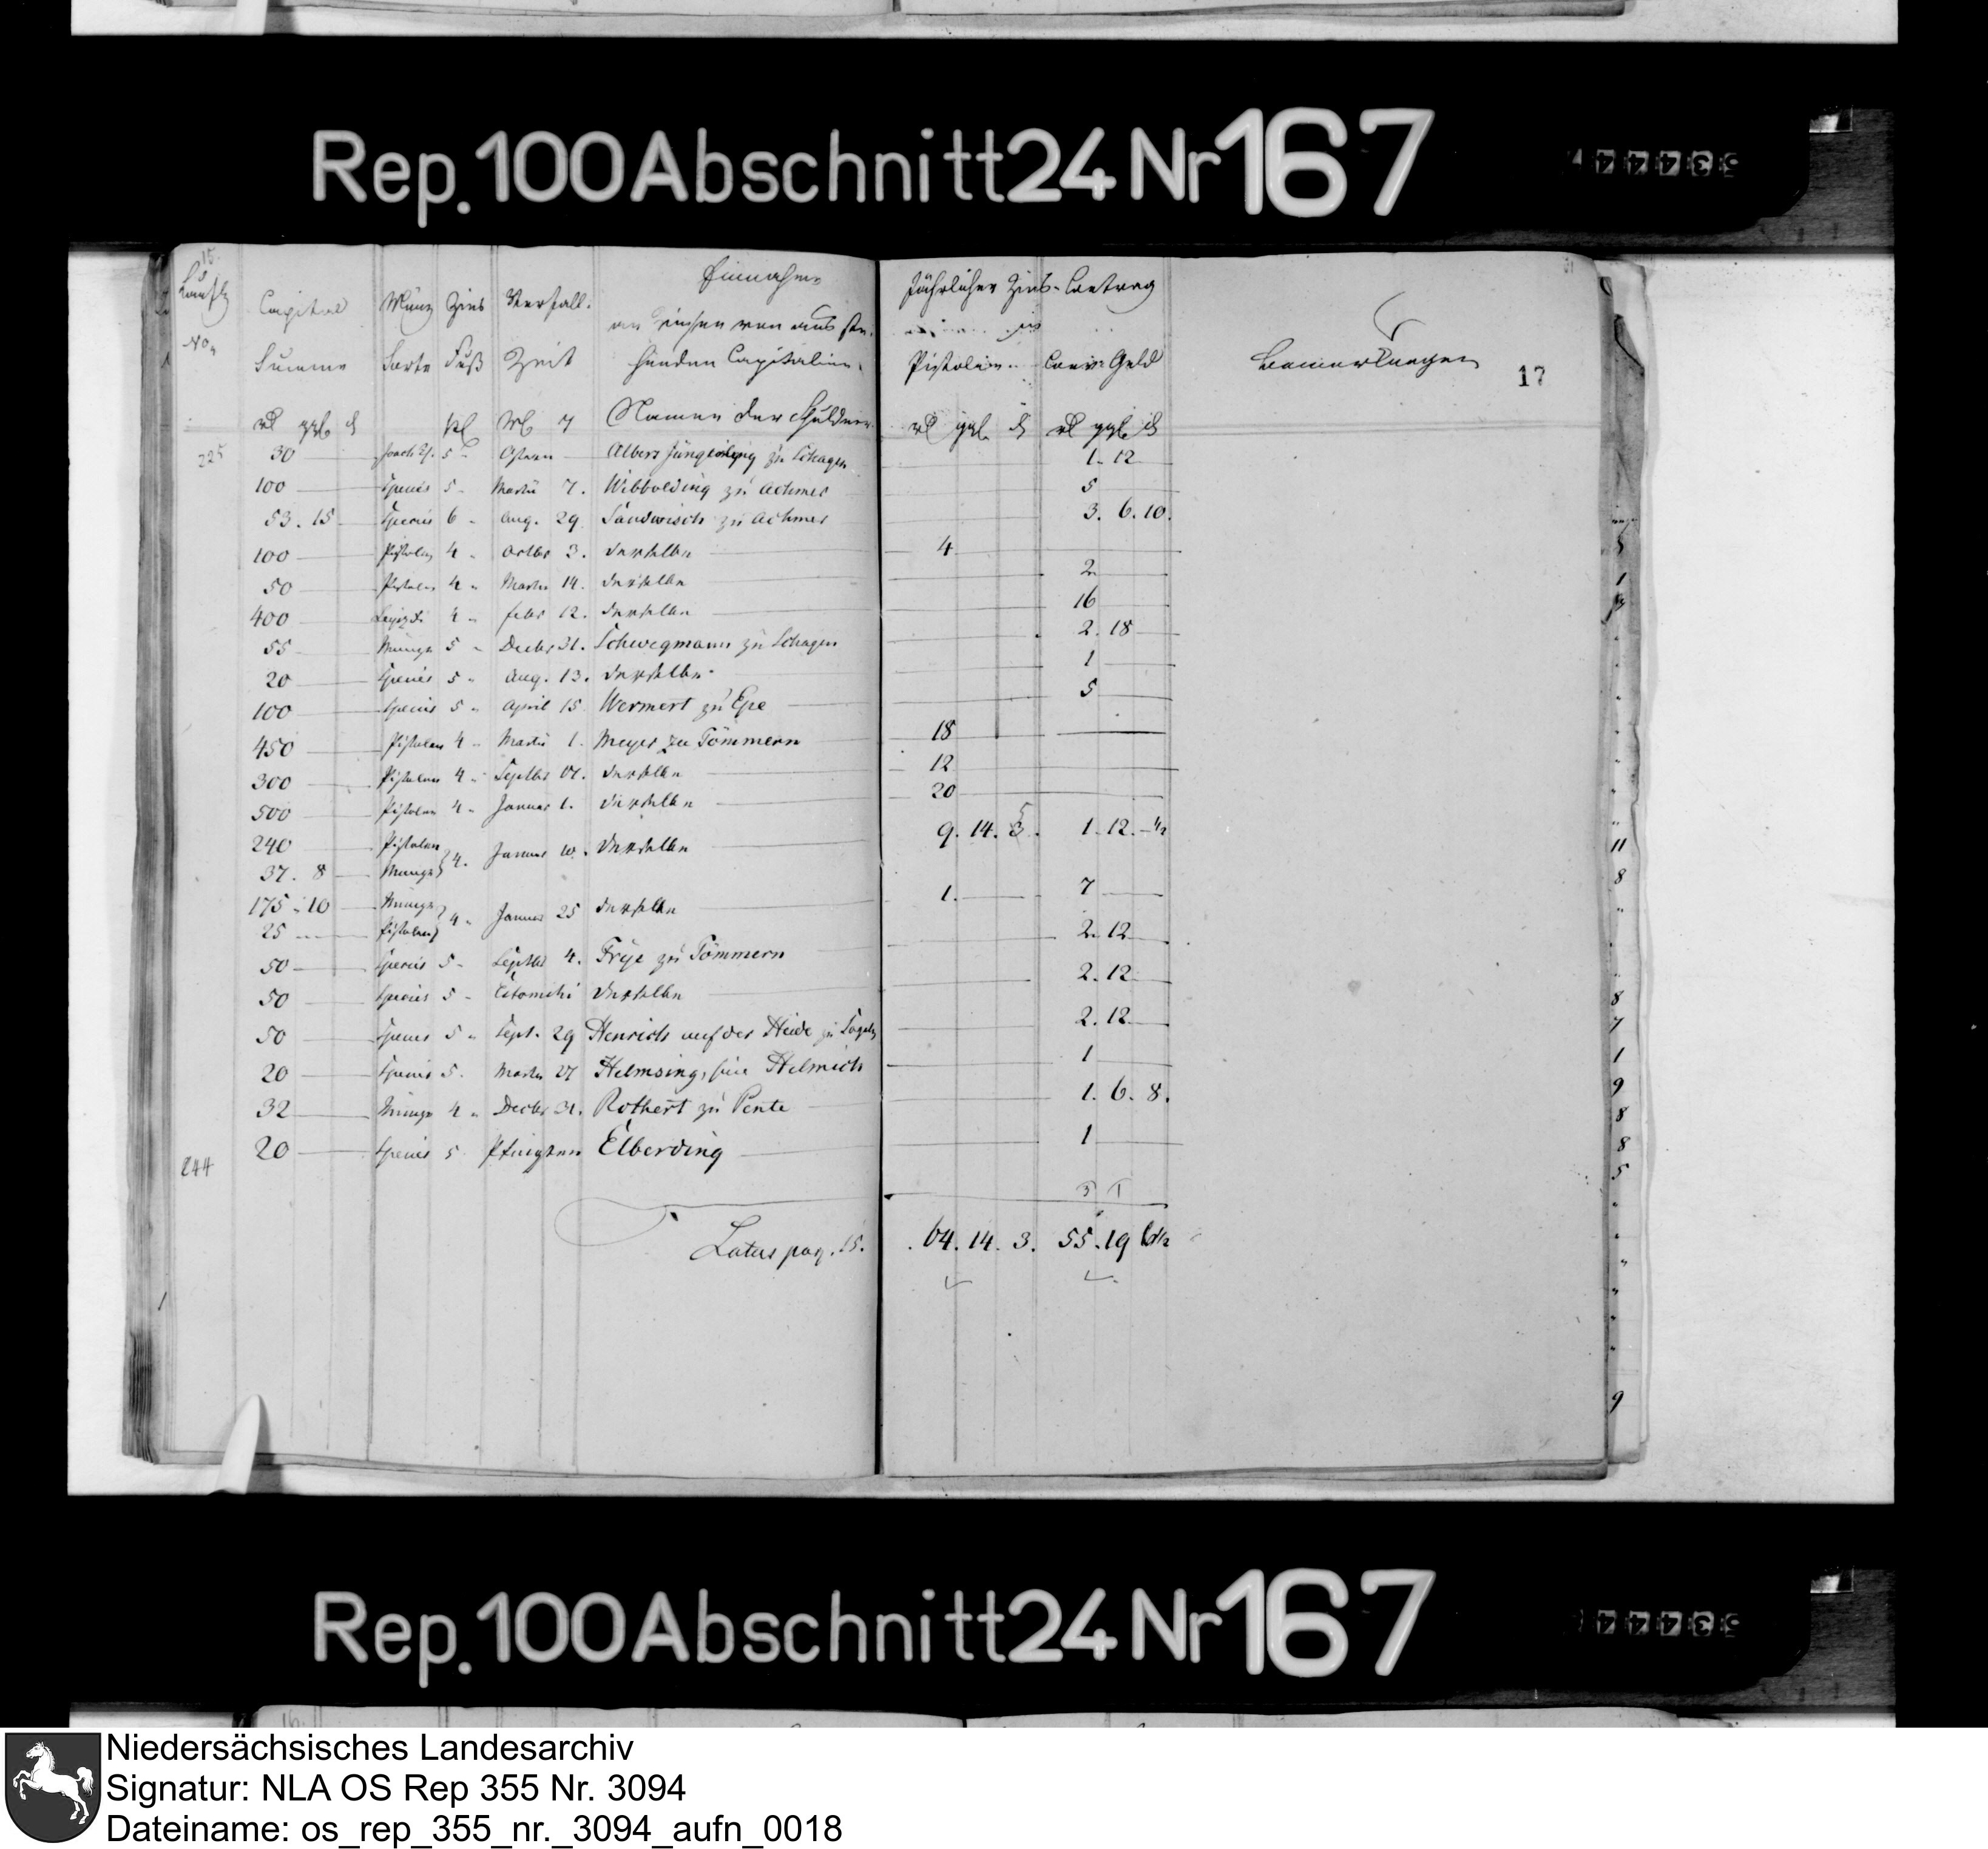 Rep. 100 Abschnitt 24 Nr 167
15.
Laufd. Capital Münz Zins Verfall. Einnahme Jährlicher Zins-Betrag
an Zinsen von aus ste¬
No. Summe Sorte Fuß Zeit henden Capitalien. Pistolen. Conv: Geld Bemerkungen 17
Namen der Schuldner
225 30 5 Ostern Albert Jüngerling zu Schagen 1. 12
100 Species 5 Martii 7. Wibbolding zu Achmer 5
53. 15 Species 6 Aug. 29 Sandwisch zu Achmer 3. 6. 10.
100 Pistolen 4 Octbr 3. derselbe 4
50 Pistolen 4 Martii 14. derselbe 2
400 4 Febr 12. derselbe 16
55 Münze 5 Decbr 31. Schwegmann zu Schagen 2. 18
20 Species 5 Aug. 13. derselbe 1
100 Species 5 April 15 Wermert zu Epe 5
450 Pistolen 4 Martii 1. Meyer zu Tömmern 18
300 Pistolen 4 Septbr 17. derselbe 12
500 Pistolen 4 Januar 1. derselbe 20
240 Pistolen 4. Januar 10. derselbe 9. 14. 3. 1. 12. ½
37. 8 Münze
175. 10 Münze 4 Januar 25 derselbe 1. 7
25 Pistolen
50 Species 5 Septbr 4. Frye zu Tömmern 2. 12
50 Species 5 Estomihi derselbe 2. 12
50 Species 5 Sept. 29 Henrich auf der Heide zu 2. 12
20 Species 5. Martii 27 Helmsing, sive Helmich 1
32 Münze 4 Decbr 31. Rothert zu Pente 1. 6. 8.
244 20 Species 5 Pfingsten Elberding 1
Latus pag. 15. 64. 14. 3. 55. 19
Rep. 100 Abschnitt 24 Nr 167
16.
Niedersächsisches Landesarchiv
Signatur: NLA OS Rep 355 Nr. 3094
Dateiname: os_rep_355_nr._3094_aufn_0018